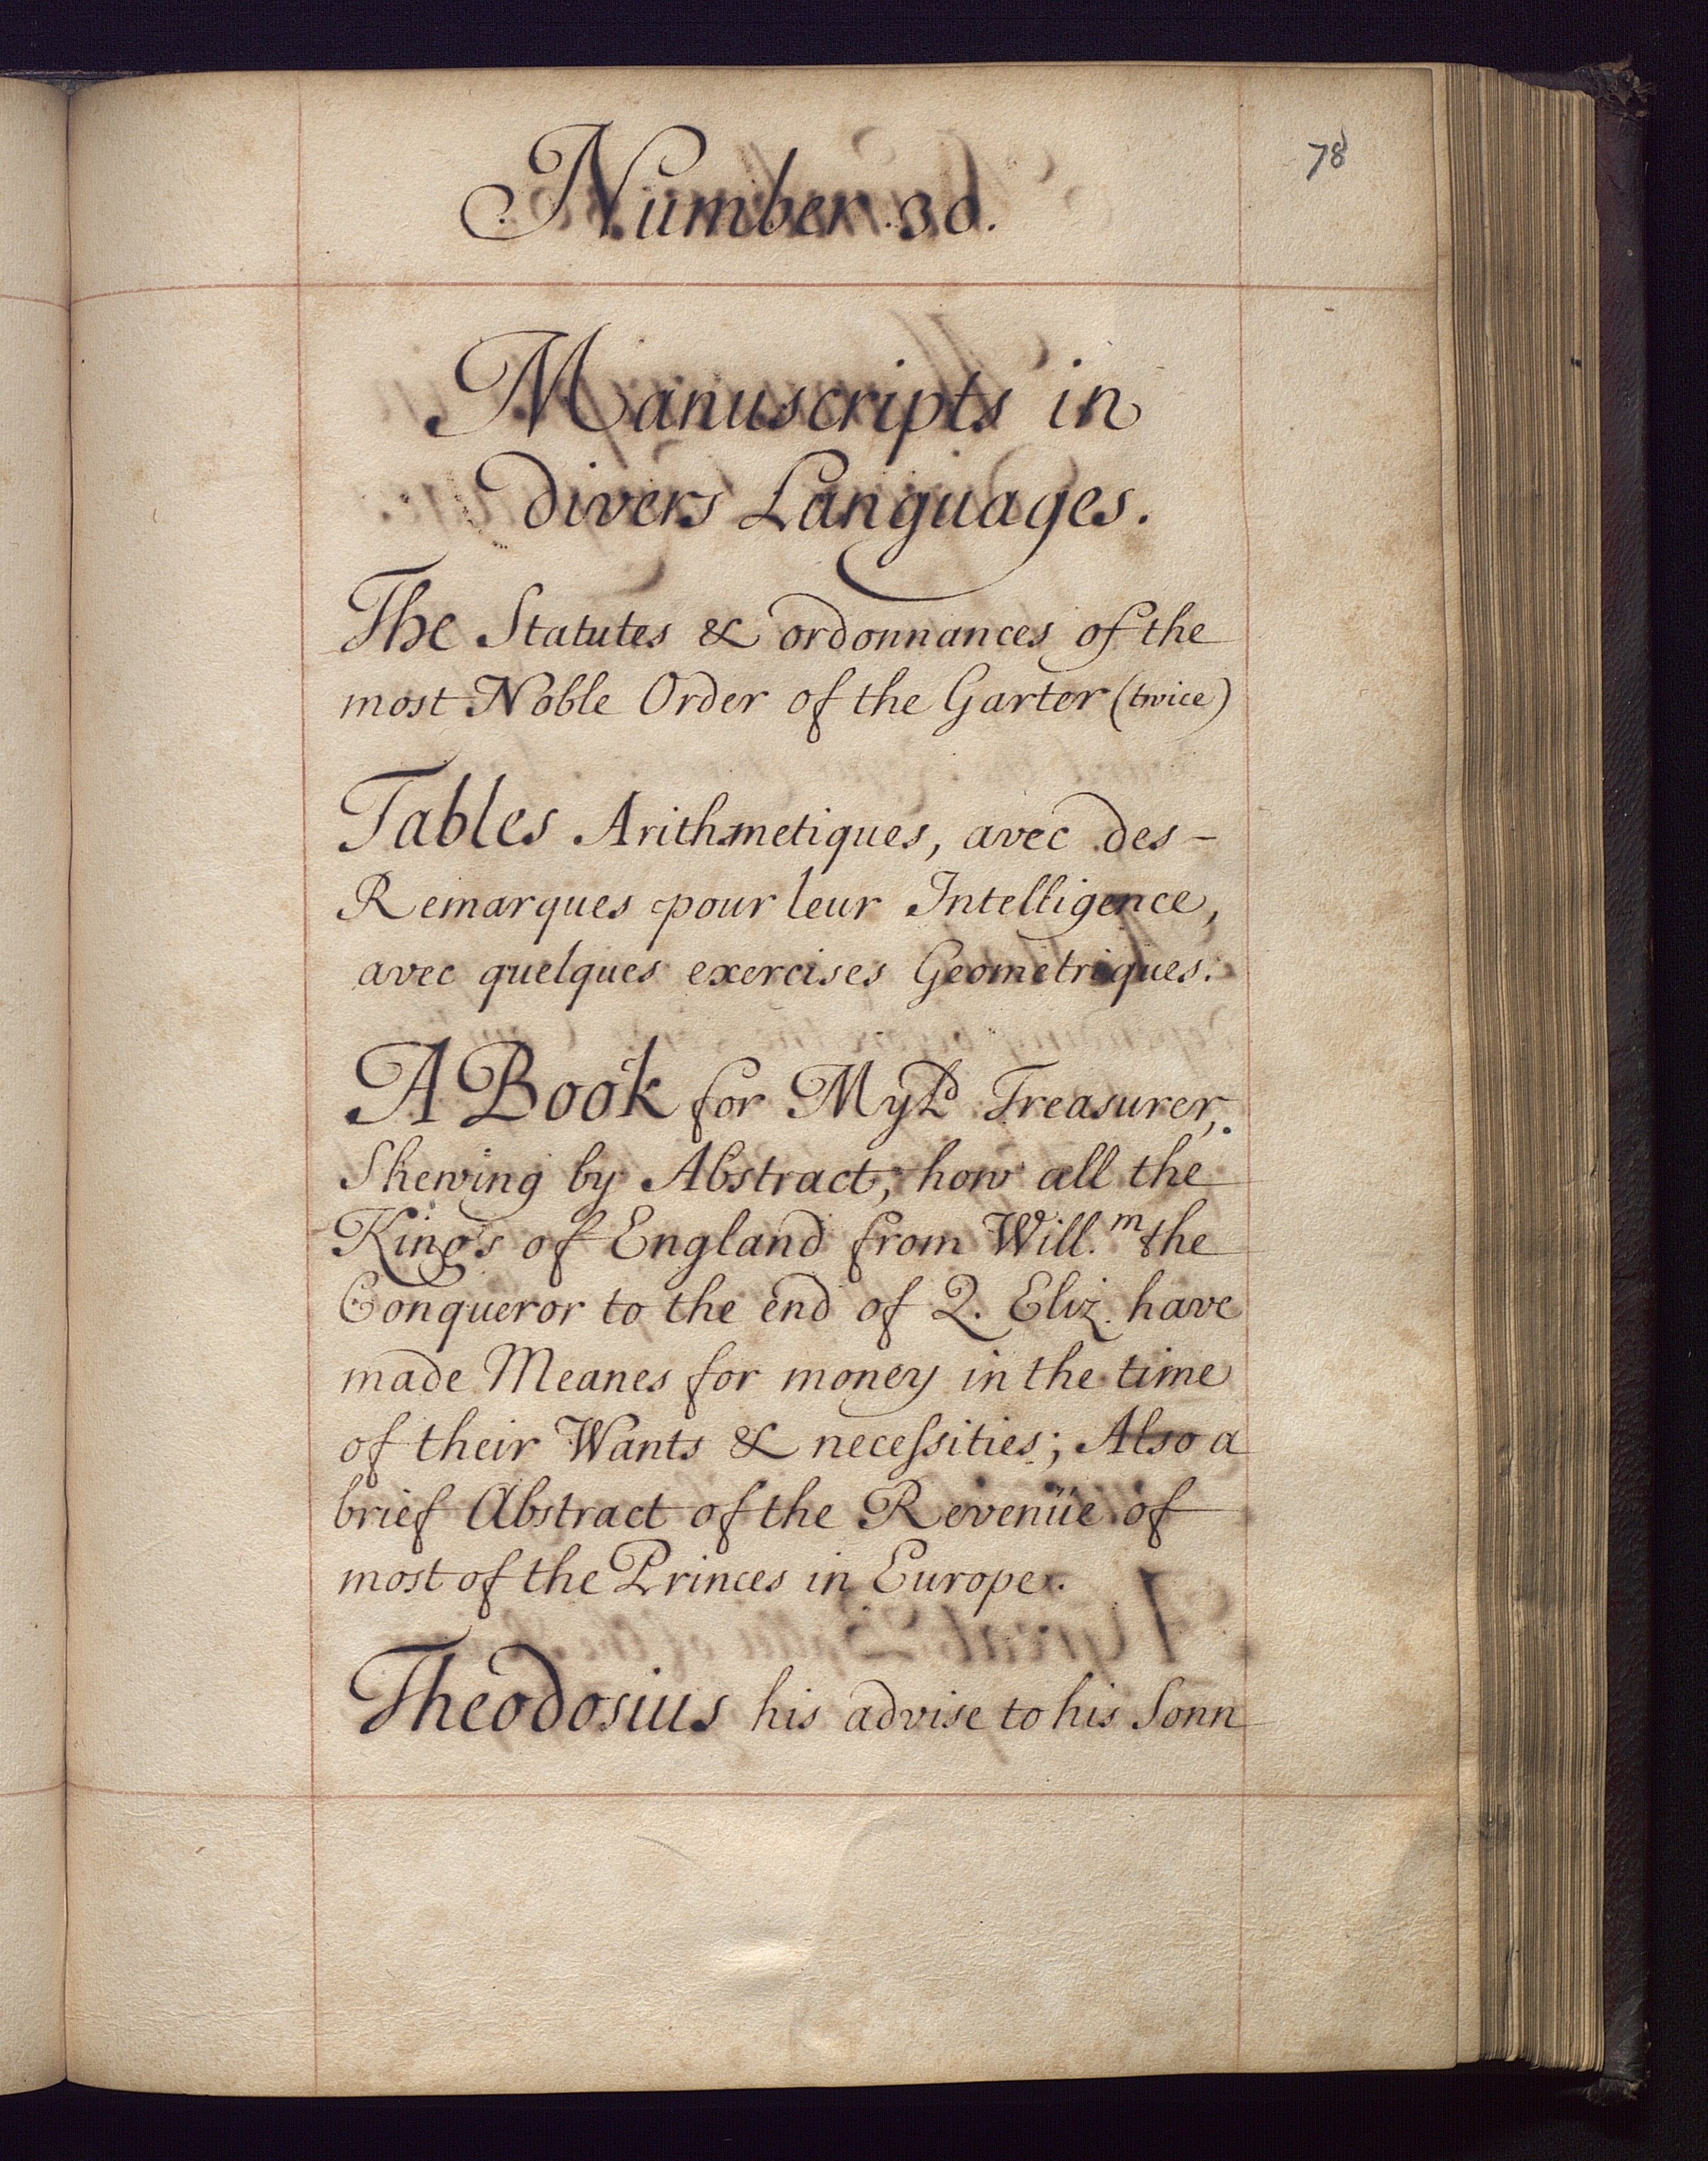 78
Number 3d.
Manuscripts in
divers Languages.
The Statutes & ordonnances of the
most Noble Order of the Garter (twice)
Tables Arithmetiques, avec des-
Remarques pour leur Intelligence,
avec quelques exercises Geometriques.
A Book for My Ld Treasurer,
Shewing by Abstract, how all the
Kings of England from Will.m the
Conqueror to the end of Q. Eliz. have
made Meanes for money in the time
of their Wants & necessities; Also a
brief Abstract of the Revenüe of
most of the Princes in Europe.
Theodosius his advise to his Sonn